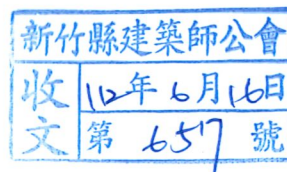 新竹縣建築師公會
收文 112年6月16日
第 657 號